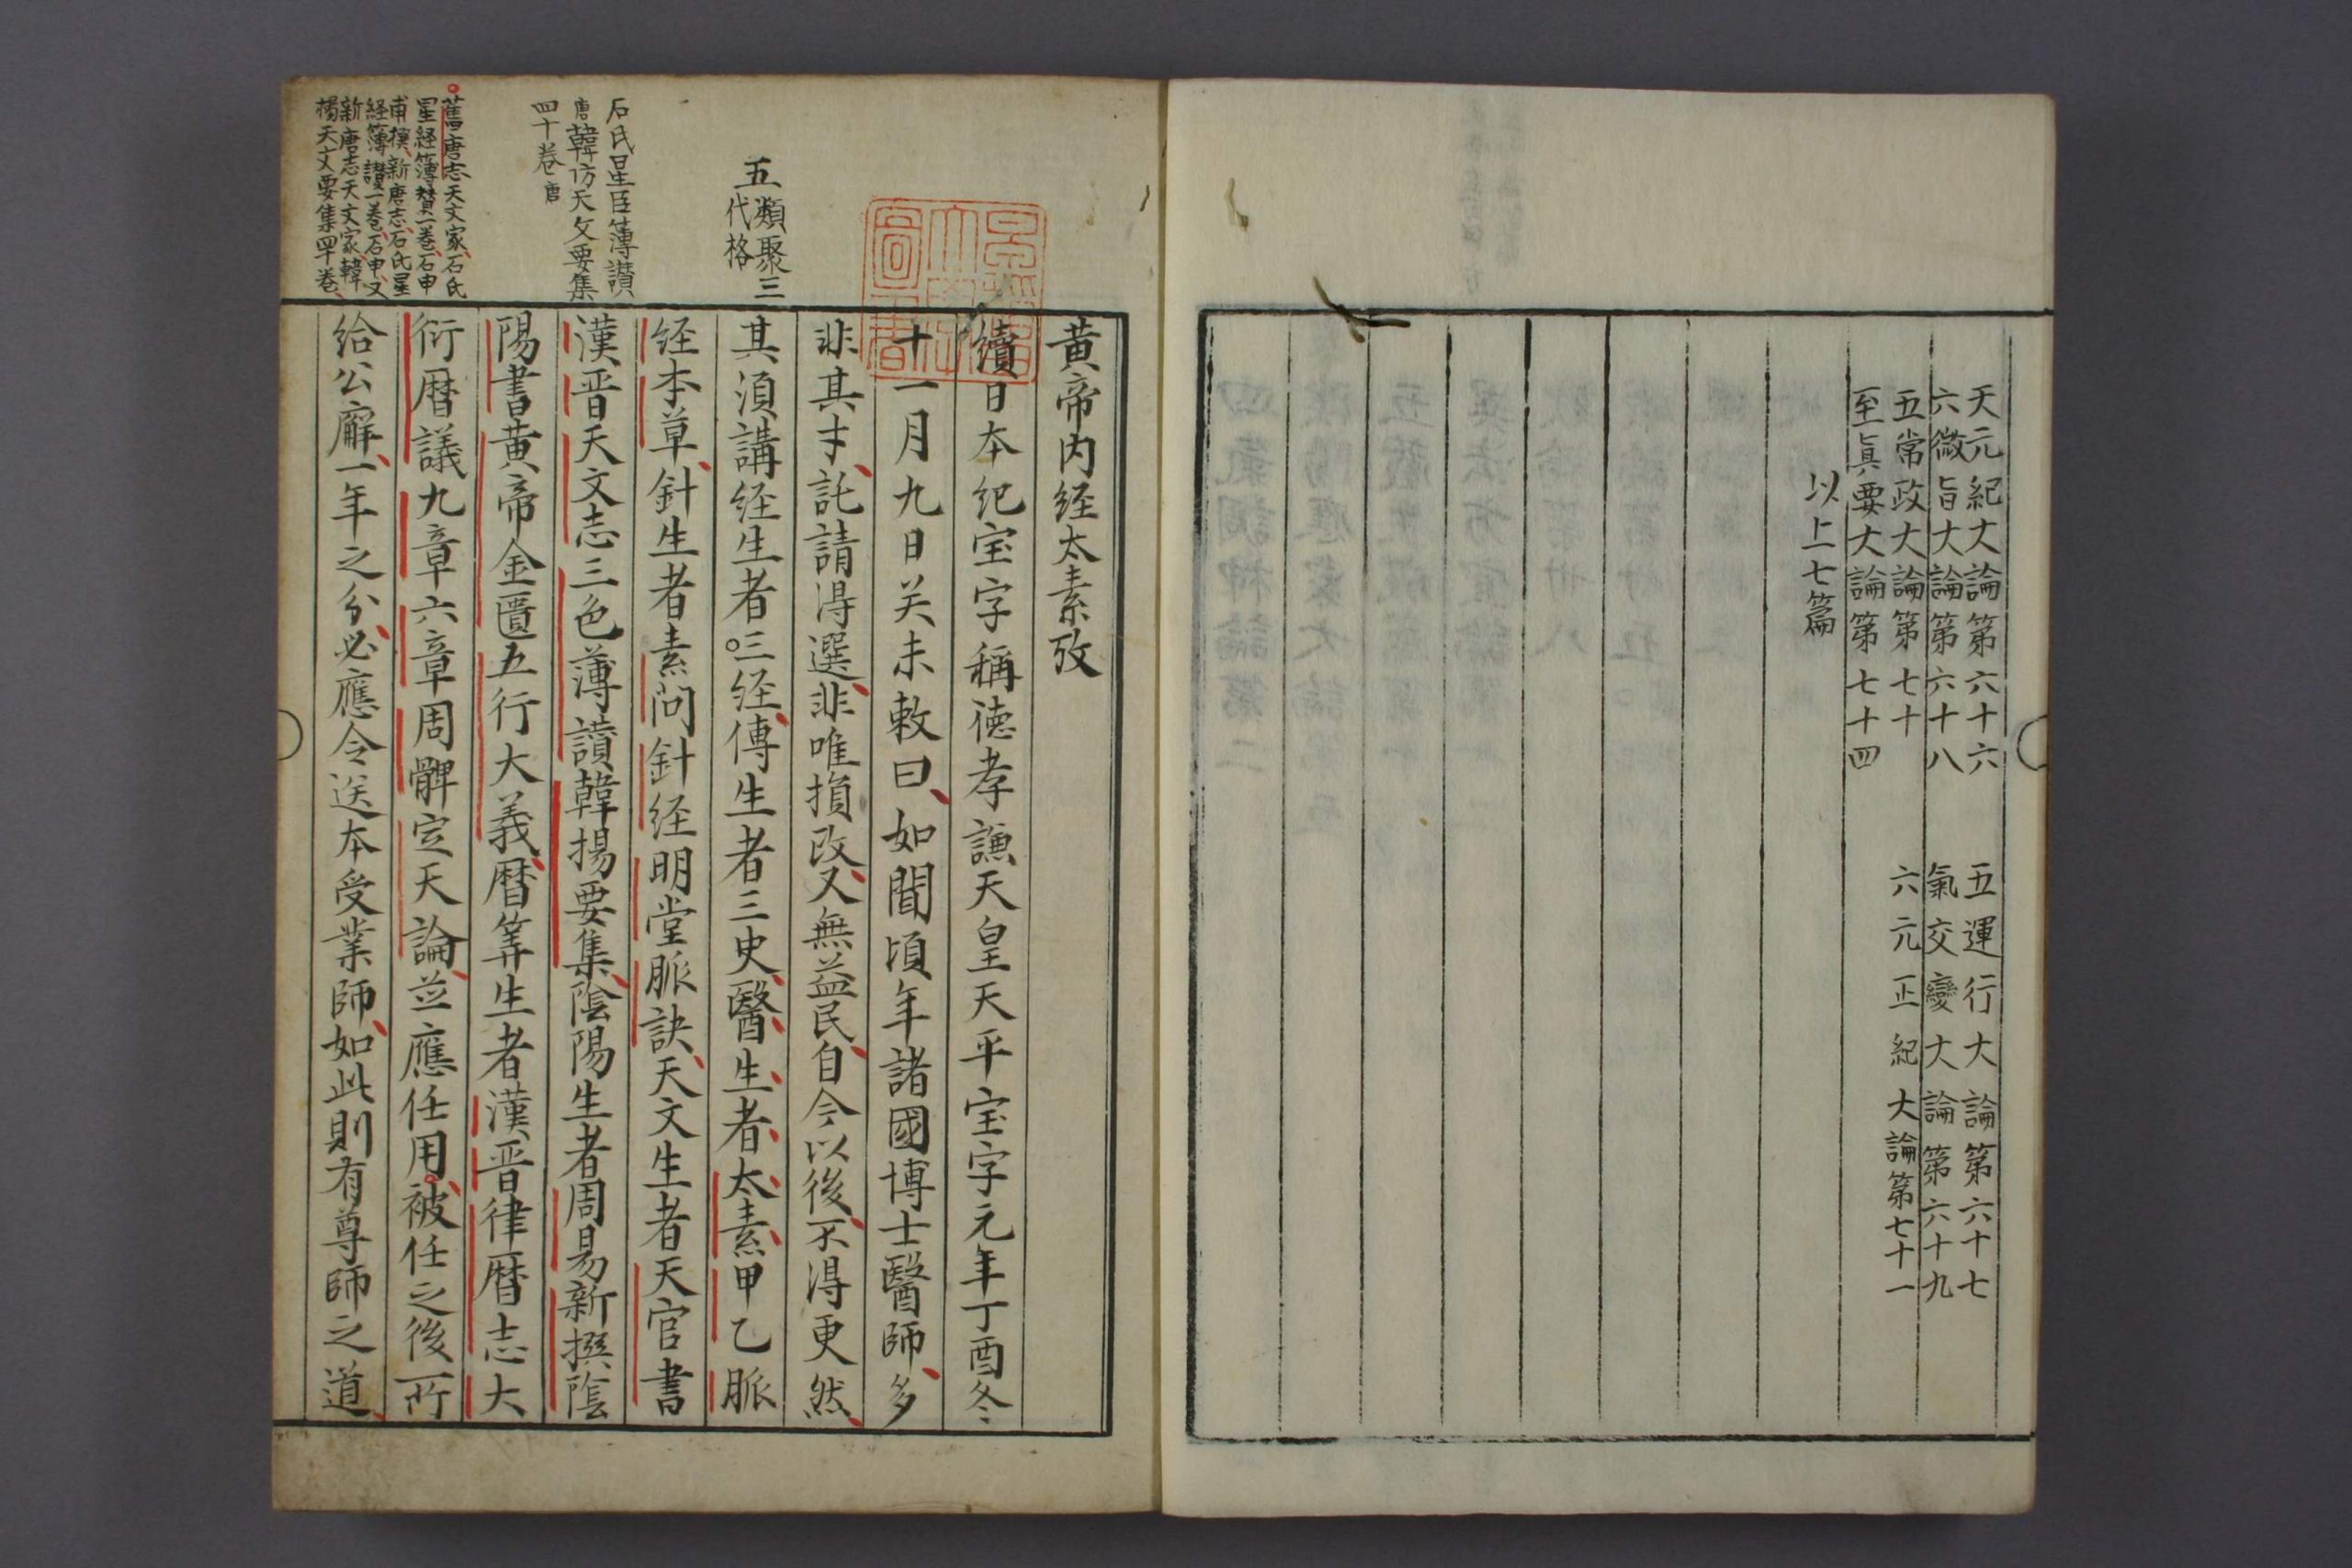 天元紀大論第六十六
五運行大論第六十七
六微旨大論第六十八
氣交變大論第六十九
五常政大論第七十
六元正紀大論第七十一
至眞要大論第七十四
以上七篇
黄帝内経太素攷
續日本紀宝字稱徳孝謙天皇天平宝字元年丁酉冬
十一月九日关未敕曰如聞頃年諸國博士醫師多
非其才託請得選非唯損政又無益民自今以後不得更然
其須講経生者三経傳生者三史醫生者太素甲乙脈
経本草針生者素問針経明堂脈訣天文生者天官書
漢晋天文志三色薄讃韓揚要集陰陽生者周易新撰陰
陽書黄帝金匱五行大義暦筭生者漢晋律暦志大
衍暦議九章六章周髀定天論並應任用被任之後所
給公廨一年之分必應令送本受業師如此則有尊師之道
類聚三
五代格
石氏星臣簿讃
唐韓仿天文要集
四十卷唐
舊唐志天文家石氏
星経簿賛一卷石申
甫撰新唐志石氏星
経簿讃一卷石申又
新唐志天文家韓
楊天文要集四十卷